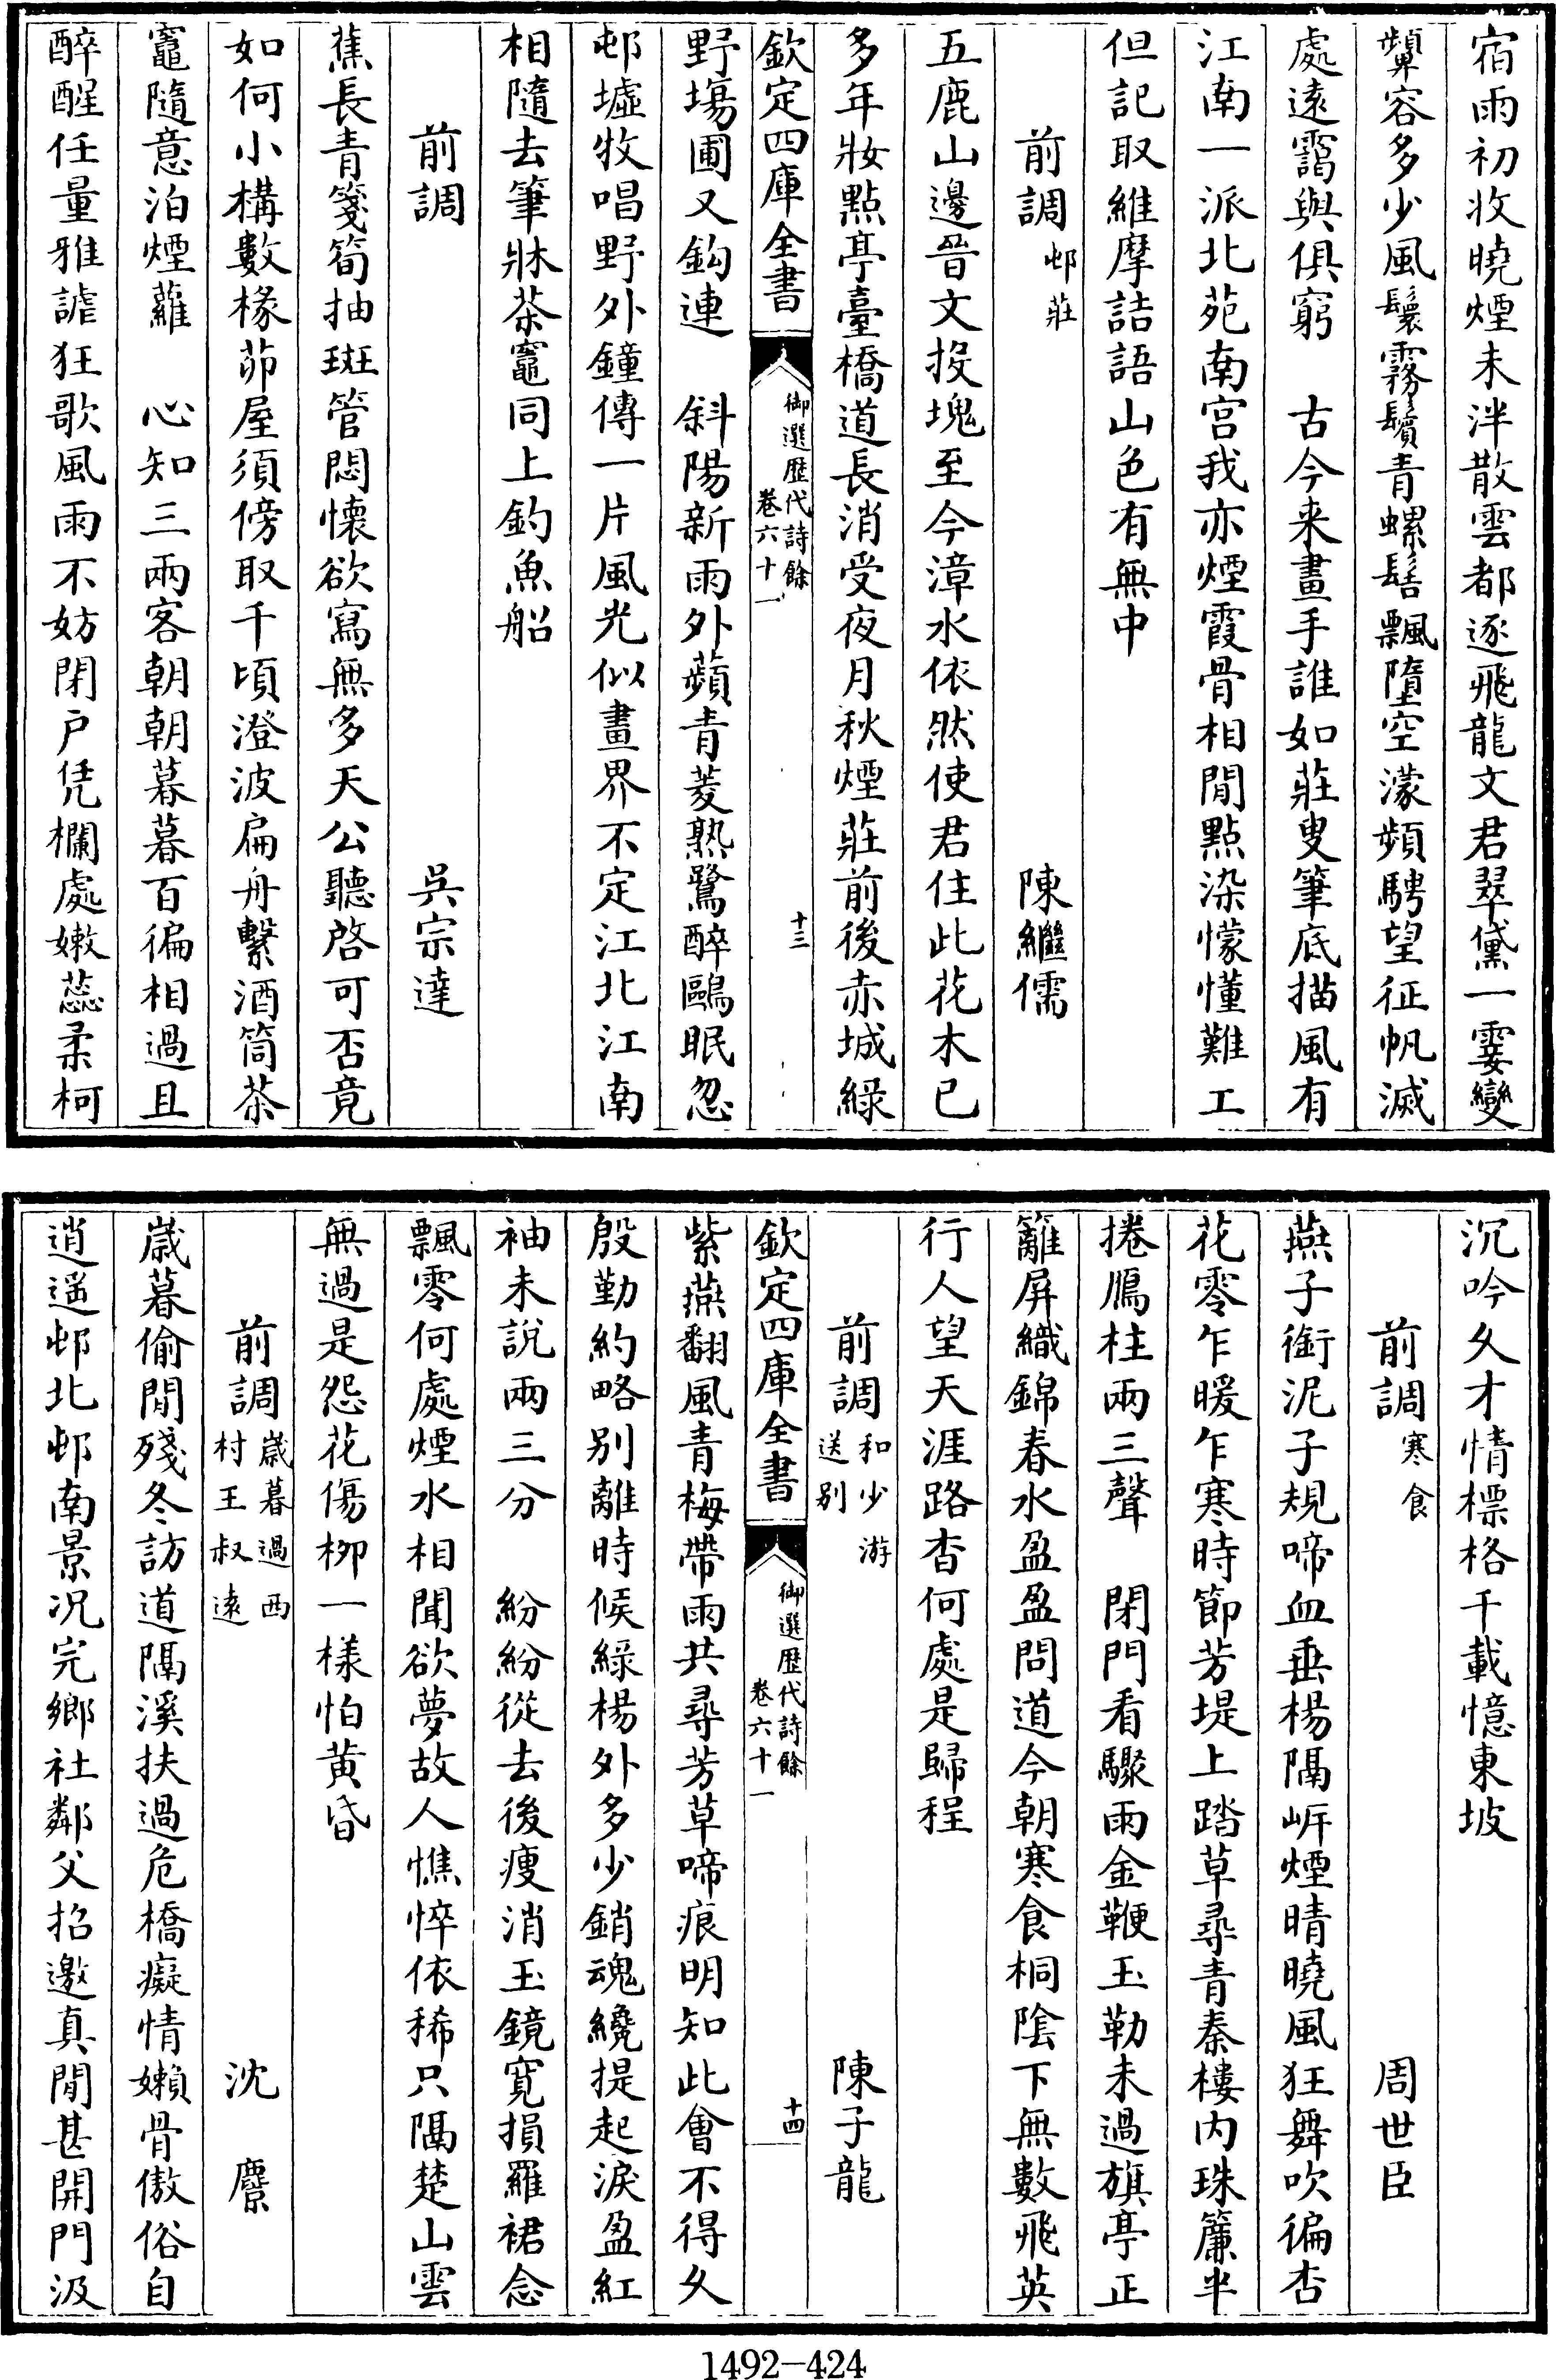 宿雨初收曉煙未泮散雲都逐飛龍文君翠黛一霎變
顰容多少風鬟霧鬢青螺髻飄墮空濛頻騁望征帆滅
處遠靄與俱窮　古今来畫手誰如莊叟筆底描風有
江南一派北苑南宫我亦煙霞骨相閒點染懞懂難工
但記取維摩詰語山色有無中
前調邨莊　陳繼儒
五鹿山邊晉文投塊至今漳水依然使君住此花木已
多年妝點亭臺橋道長消受夜月秋煙莊前後赤城綠
欽定四庫全書　御選歷代詩餘　卷六十一　十三
野塲圃又鈎連　斜陽新雨外蘋青菱熟鷺醉鷗眠忽
邨墟牧唱野外鐘傳一片風光似畫界不定江北江南
相隨去筆牀茶竈同上釣魚船
前調　吳宗達
蕉長青箋筍抽斑管悶懷欲寫無多天公聽啓可否竟
如何小構數椽茆屋須傍取千頃澄波扁舟繫酒筒茶
竈隨意泊煙蘿　心知三兩客朝朝暮暮百徧相過且
醉醒任量雅謔狂歌風雨不妨閉户凭欄處嫩蕊柔柯
沉吟久才情標格千載憶東坡
前調寒食　周世臣
燕子銜泥子規啼血垂楊隔岍煙晴曉風狂舞吹徧杏
花零乍暖乍寒時節芳堤上踏草尋青秦樓内珠簾半
捲鴈柱兩三聲　閉門看驟雨金鞭玉勒未過旗亭正
籬屏織錦春水盈盈問道今朝寒食桐陰下無數飛英
行人望天涯路杳何處是歸程
前調和少游送别　陳子龍
欽定四庫全書　御選歷代詩餘　卷六十一　十四
紫燕翻風青梅帶雨共尋芳草啼痕明知此會不得久
殷勤約略别離時候綠楊外多少銷魂纔提起淚盈紅
袖未說兩三分　紛紛從去後瘦消玉鏡寬損羅裙念
飄零何處煙水相聞欲夢故人憔悴依稀只隔楚山雲
無過是怨花傷栁一樣怕黄昏
前調歳暮過西村王叔遠　沈麖
歳暮偷閒殘冬訪道隔溪扶過危橋癡情嬾骨傲俗自
逍遥邨北邨南景况完鄉社鄰父招邀真閒甚開門汲
1492-424